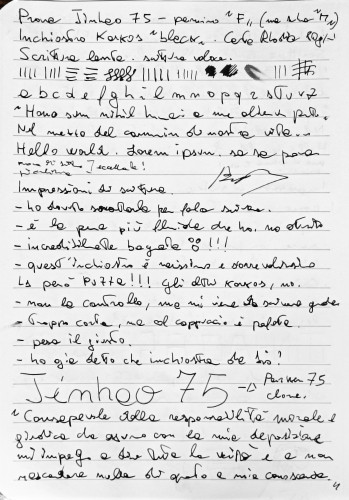 Prova Jinhao 75 - pennino "F" (ma sembra "M")
Inchiostro Kaxos "black". Carta Rhodia 80g/m
Scrittura lenta. scrittura veloce.
a b c d e f g h i l m n o p q r s t u v z
"Homo sum nihil humani a me alienum puto.
Nel mezzo del cammin di nostra vita...
Hello world. Lorem ipsum. sa sa prova
Impressioni di scrittura.
- ho dovuto per farla scrivere.
- è la penna più fluida che ho.
- incredibilmente bagnata !!!
- quest'inchiostro è nerissimo e
però PUZZA!!! Gli altri Kaxos, no.
- non la controllo, ma mi viene da scrivere grande
- troppo corta, ma col cappuccio è palata.
- pesa il giusto.
- ho già detto che inchiostra da Dio!
Jinhao 75 → Parker 75
clone.
"Consapevole della responsabilità morale e
giuridica che assumo con la mia deposizione
mi impegno a dire tutta la verità e a non
nascondere nulla di quanto a mia conoscenza.